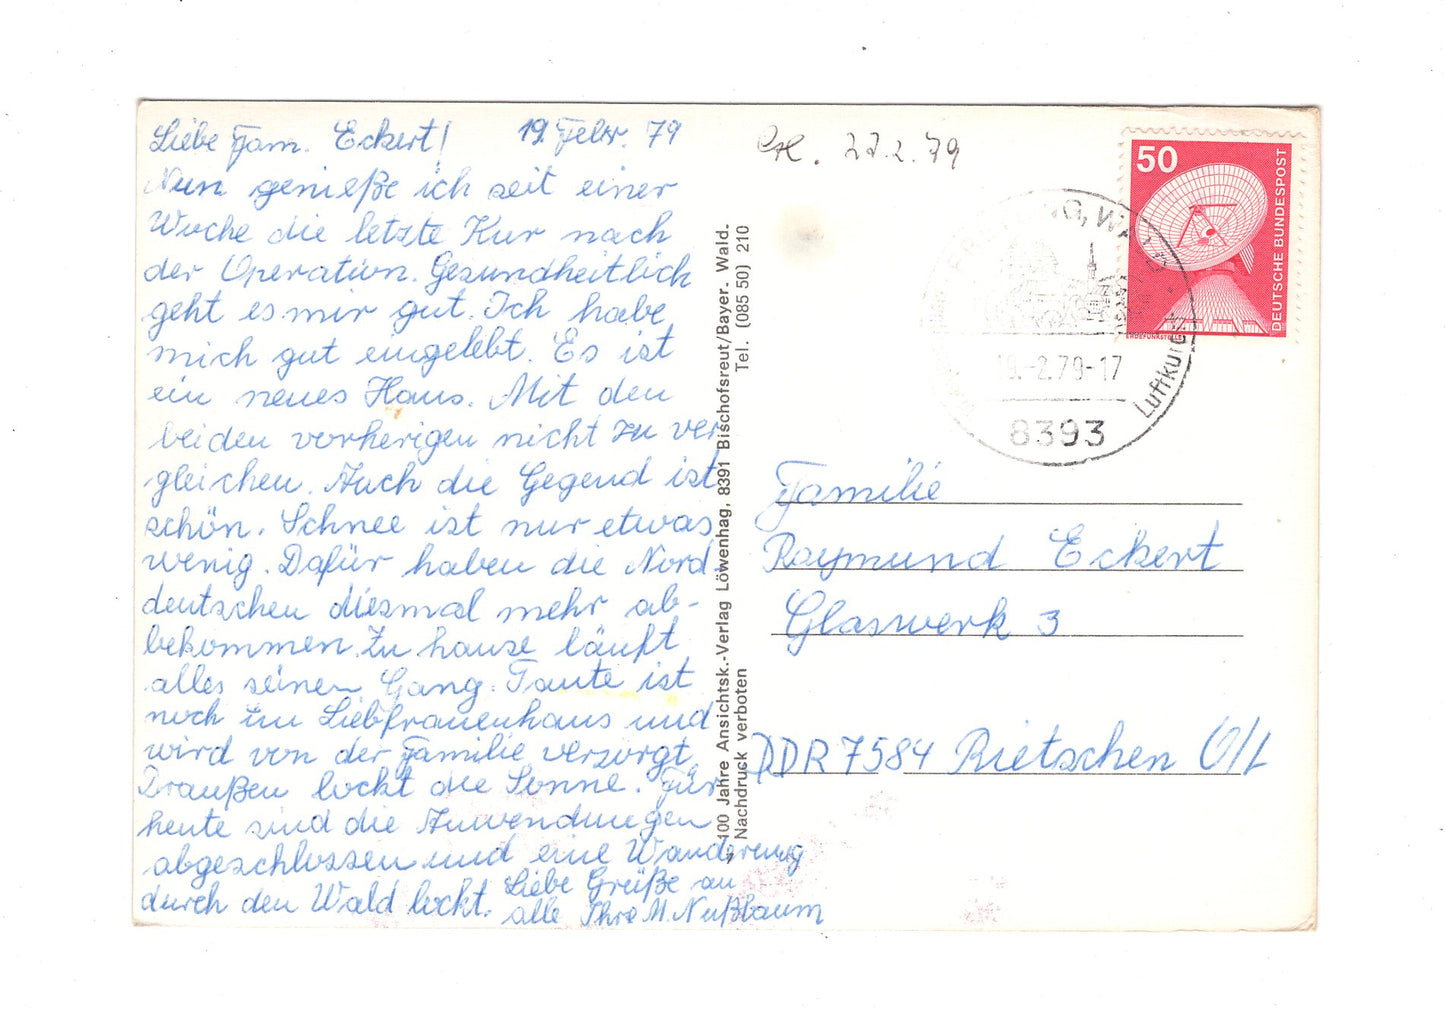 Liebe Fam. Eckert! 19. Febr. 79
Nun genieße ich seit einer
Woche die letzte Kur nach
der Operation. Gesundheitlich
geht es mir gut. Ich habe
mich gut eingelebt. Es ist
ein neues Haus. Mit den
beiden vorherigen nicht zu ver-
gleichen. Auch die Gegend ist
schön. Schnee ist nur etwas
wenig. Dafür haben die Nord-
deutschen diesmal mehr ab-
bekommen. Zu hause läuft
alles seinen Gang. Tante ist
noch im Liebfrauenhaus und
wird von der Familie versorgt.
Draußen lockt die Sonne. Für
heute sind die Anwendungen
abgeschlossen und eine Wanderung
durch den Wald lockt. Liebe Grüße an
alle Ihre M. Nußbaum
100 Jahre Ansichtsk.-Verlag Löwenhag, 8391 Bischofsreut/Bayer. Wald.
Nachdruck verboten Tel. (085 50) 210
22.2.79
50
DEUTSCHE BUNDESPOST
ERDEFUNKSTELLE
19.-2.79-17
8393
Luftkurort
Familie
Raymund Eckert
Glaswerk 3
DDR 7584 Rietschen O/L